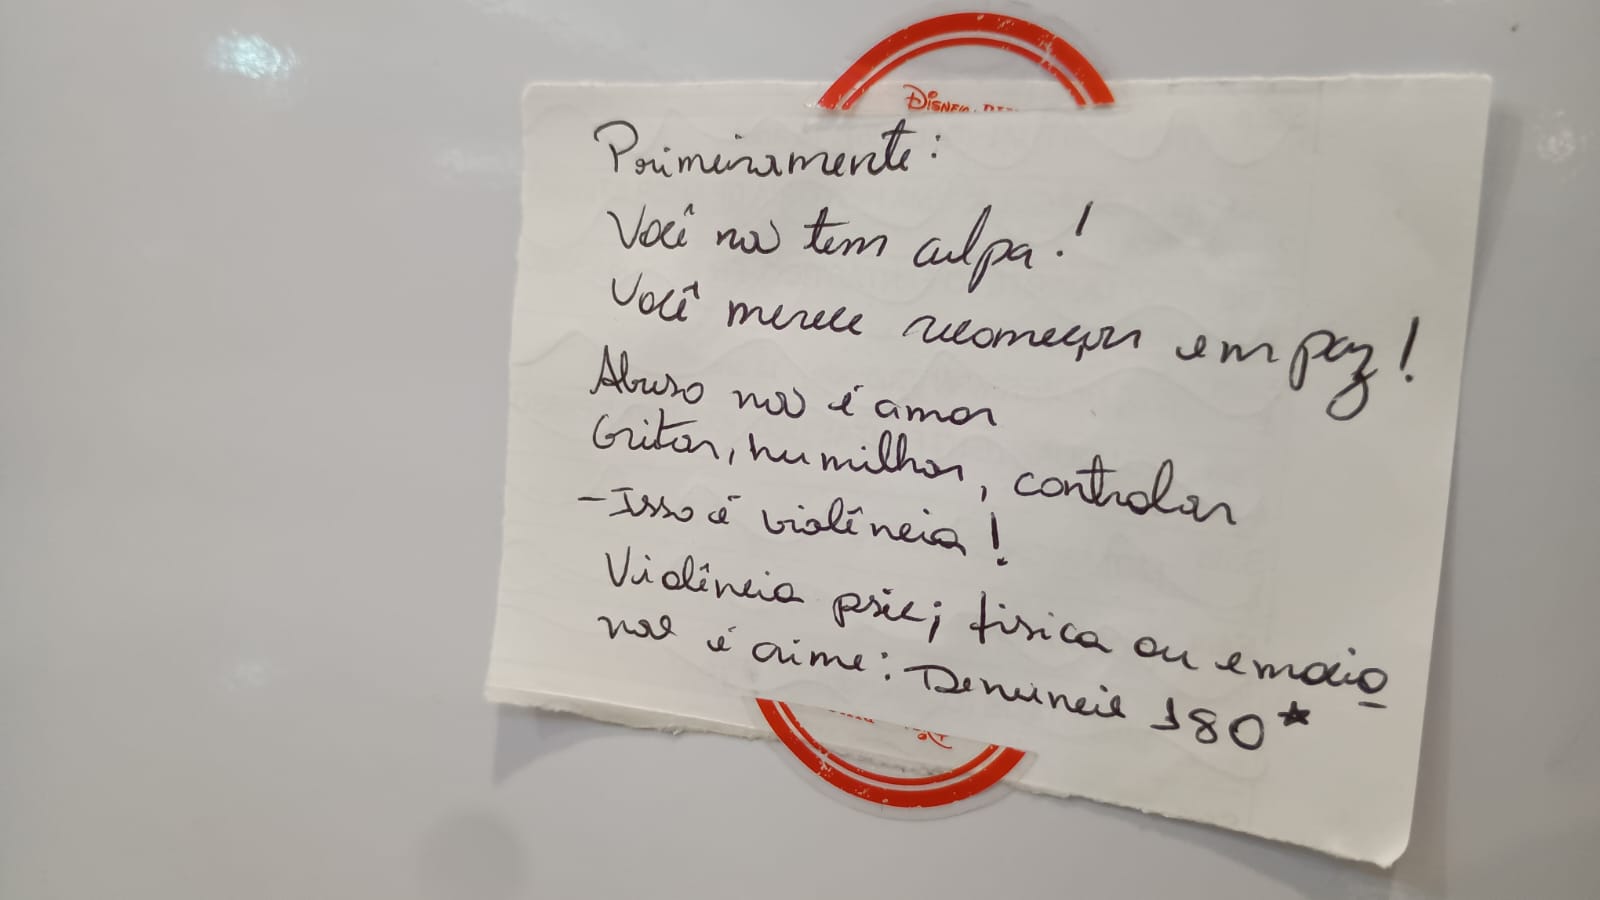 Disney
Primeiramente:
Você não tem culpa!
Você merece recomeçar em paz!
Abuso não é amor
Gritar, humilhar, controlar
- Isso é violência!
Violência psic; física ou emocio
não é crime: Denuncie 180*